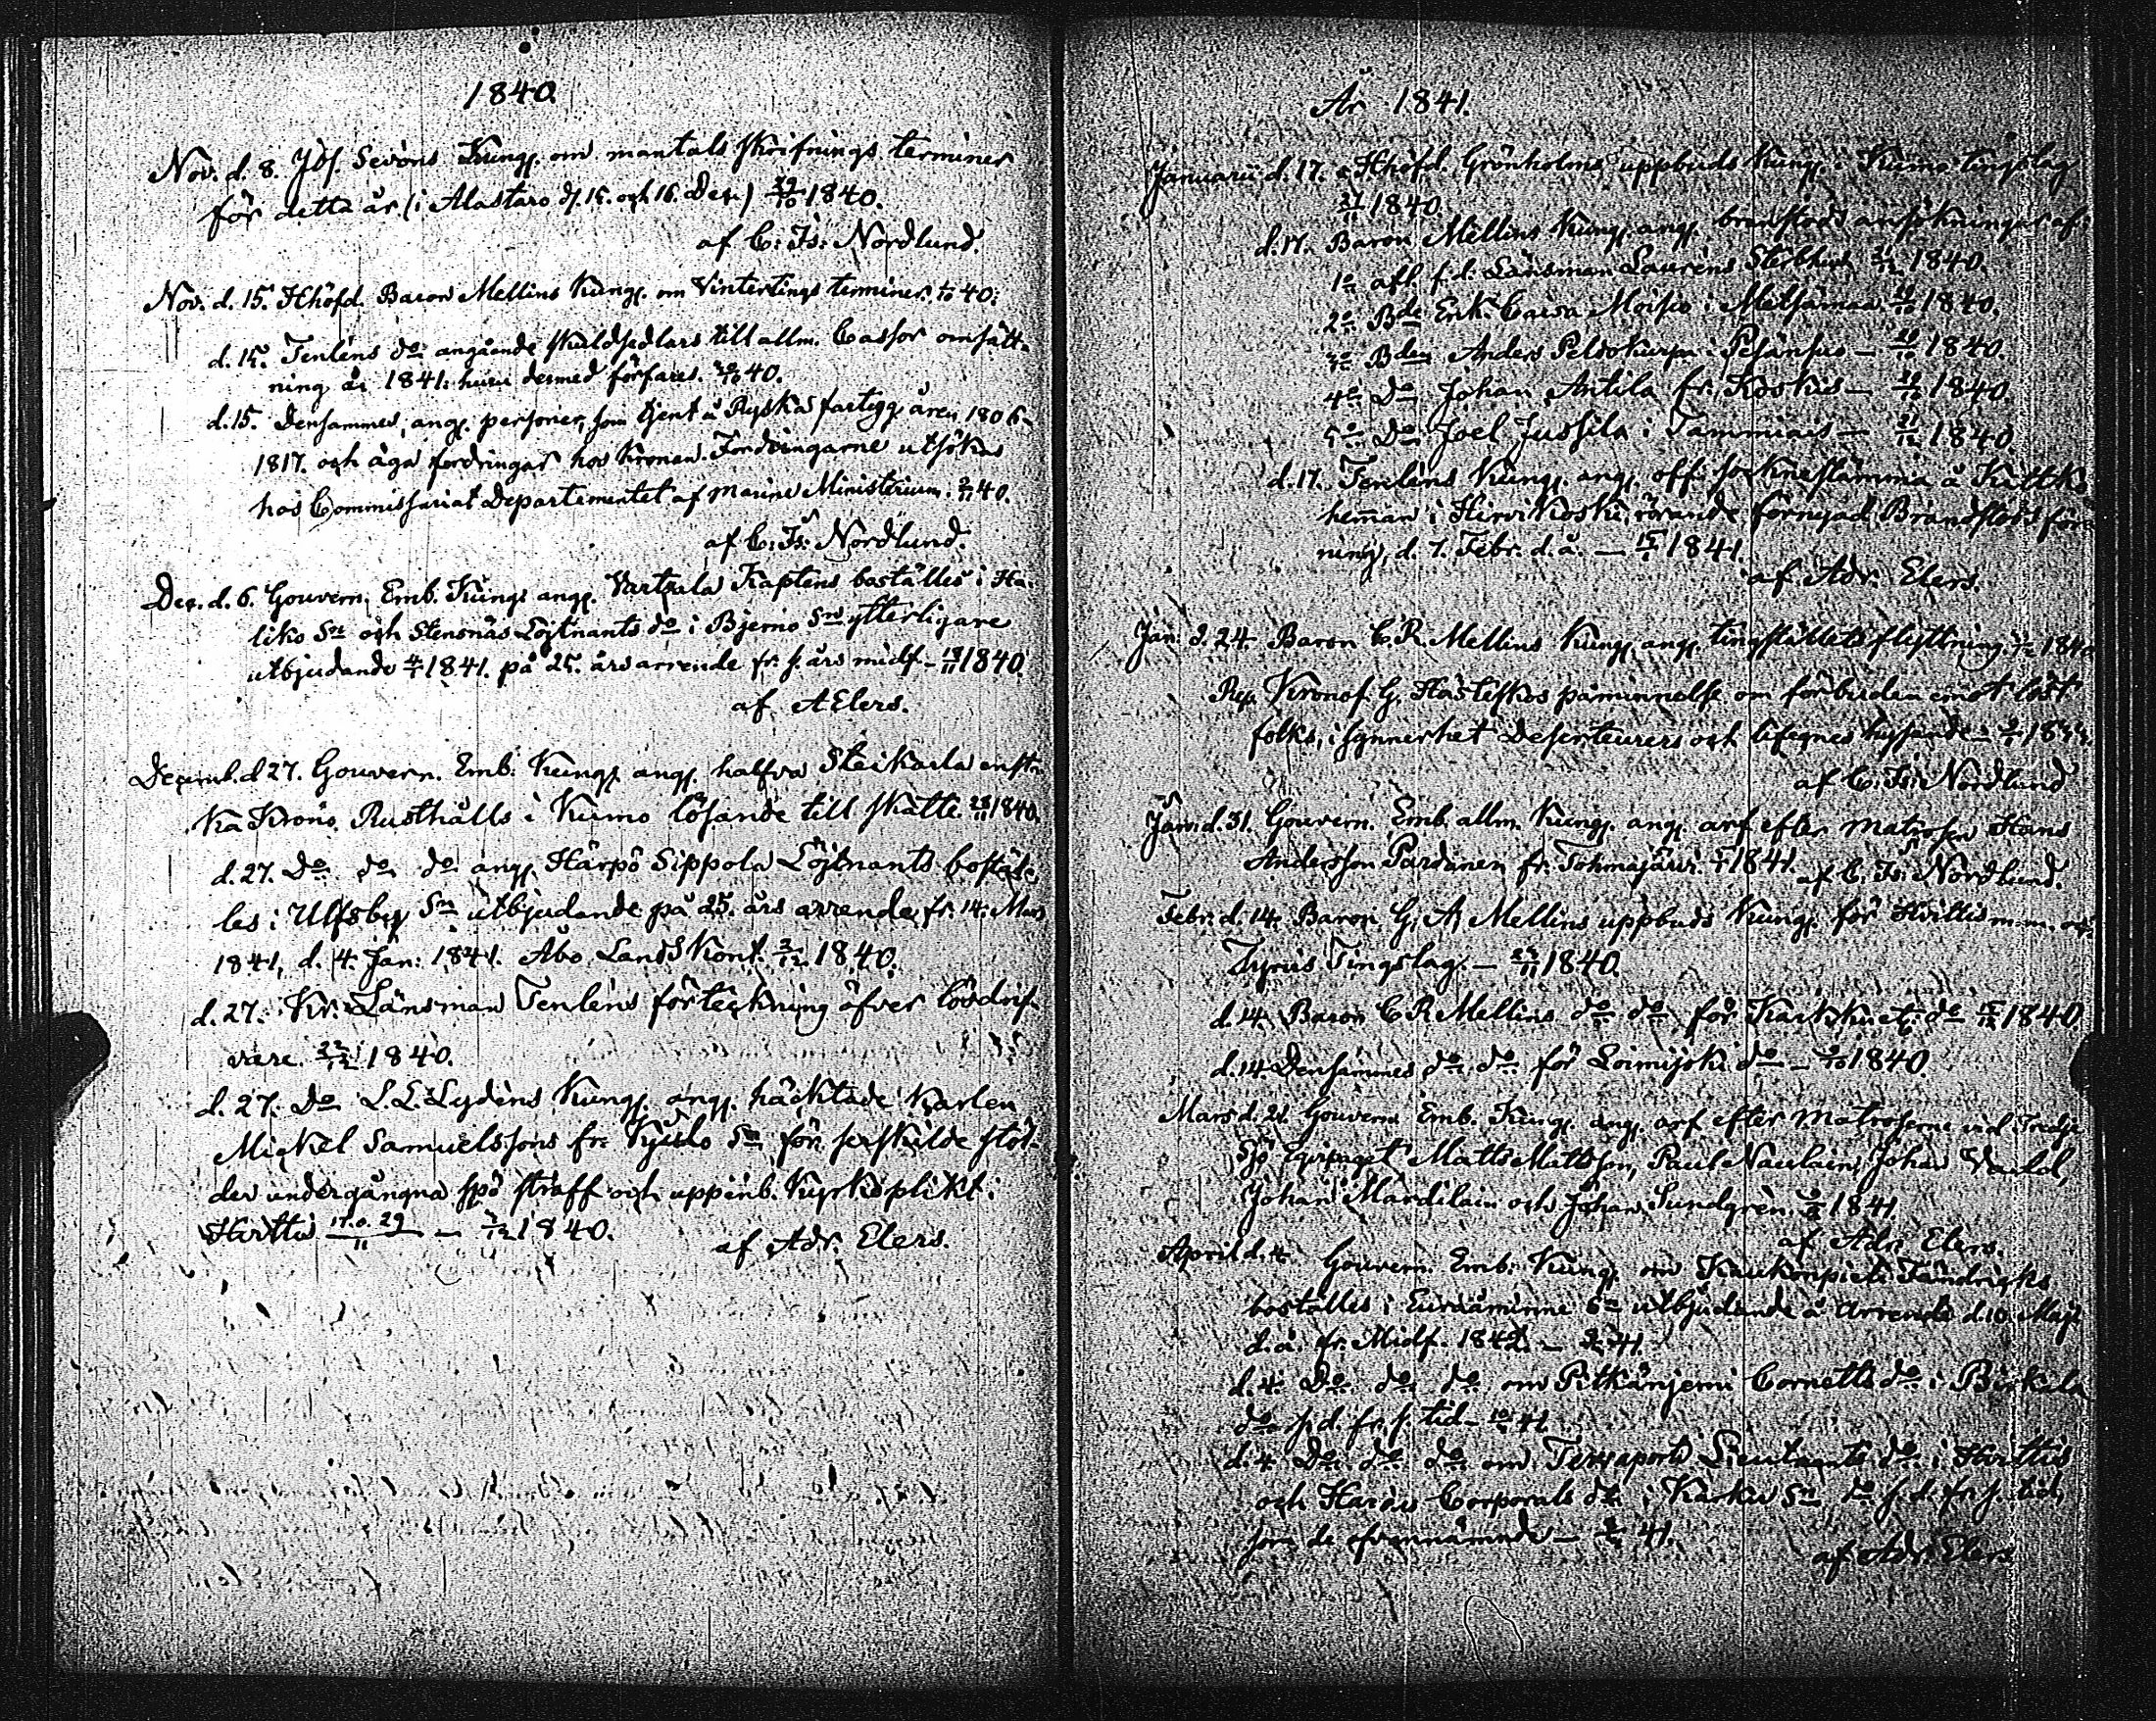 1840.
Nov. d. 8. Jos. Sevóns Kungj. om mantals skrifnings terminer
för detta år (i Alastaro d. 15. och 16. Dec.) 29/10 1840.
af C: Is: Nordlund.
Nov. d. 15. Hhöfd. Baron Mellins Kungj. om Vintertings terminer 40:
d. 15. Tenléns do: angående skuldsedlars till allm. Cassor omsätt-
ning år 1841: huru dermed förfares. 40.
d. 15. Densammes, angj. personer, som tjent å Ryska fartyg åren 1806-
1817. och äga fordringar hos Kronan. Fordringarne utsökas
hos Commissariat Departementet af Marine Ministerium. 40.
af C: Is: Nordlund.
Dec. d. 6. Gouvern. Emb. Kungj. angj. Vartsala Kaptens boställes i Ha-
liko Sn och Stensnäs Löjtnants do i Bjerno Sn ytterligare
utbjudande 4/1 1841. på 25. års arrende fr. s. års midf. - 18/11 1840.
af A Elers.
Decemb. d 27. Gouvern. Emb. Kungj. angj. halfva Steikarla
ka Krono Rusthålls i Kumo lösande till skatte. 28/11 1840.
d. 27. Do do do angj. Härpö Sippola Löjtnants bostäl-
les i Ulfsby Sn utbjudande på 25. års arrende, fr. 14. Mars
1841, d. 14. Jan: 1841. Åbo LandsKont. 1840.
d. 27. Kr. Länsman Tenléns förteckning öfver lösdrif-
vare. 1840.
d. 27. Do L. L. Lydéns Kungj. angj. häcktade Karlen
Mickel Samuelssons fr. Kjulo Sn för serskilde stöl-
der undergångna spö straff och uppenb. Kyrkoplikt i
Hvittis 17. o. 29/11 - 1840.
af Adr. Elers.
År 1841.
Januarii d. 17. Hhöfd. Grönholms uppbuds Kungj. i Kumo tingslag
1840.
d. 17. Baron Mellins Kungj. angj. brandstods ansökningar af:
1o afl. f. d. Länsman Lauréns 1840.
2o Bde Erik Moisio i Metsämaa 1840.
3o Bden Anders Peldokurpa i 1840.
4o Do Johan Antila fr. Koskis - 1840.
5o Do Joel Jussila i Tammiais - 21/12 1840
d. 17. Tenléns Kungj. angj. off. socknestämma å
hemman i Hirvikoski, rörande förnyad Brandstods
ning, d. 7. Febr. d. å. - 15/1 1841.
af Adr. Elers.
Jan: d. 24. Baron C. R. Mellins Kungj. angj. tingställets flyttning. 1840
Rep. Kronof. G. Hästeskos påminnelse om förbuden emot löst
folks, i synnerhet Deserteurers och lifegnes hysande -
af C. Is: Nordlund
Jan. d. 31. Gouvern. Emb. allm. Kungj. angj. arf efter Matrosen Hans
Andersson Pardanen fr. Tohmajärvi. 1841. af C. Is: Nordlund.
Febr. d. 14. Baron G. A. Mellins uppbuds Kungj. för Hvittis m. m. och
Tyrvis Tingslag. - 1840.
d. 14. Baron C R Mellins do do för do 1840
d. 14 Densammes do. do. för Loimijoki do - 1840.
Mars d. 21. Gouvern. Emb. Kungj. angj. arf efter Matroserne vid
Sjö Equipaget Matts Mattsson, Paul Johan
Johan och Johan Sundgrén. 1841.
af Adr. Elers.
April d. 4. Gouvern. Emb: Kungj. om Fändricks
boställes i Euraåminne Sn utbjudande å Arrende d. 10. Maji
d. å. fr. Midf. 1842. - 41.
d. 4. Do. do do om Pitkänjemi Cornetts do i Birkala
do s. d. fr. s. tid - 41
d. 4. Do. do. do. om Lieutnants do. i Hvittis
och Corporals do. i Karku Sn do s. d. fr. s. tid,
som de ofvannämnde - 41.
af Adr. Elers